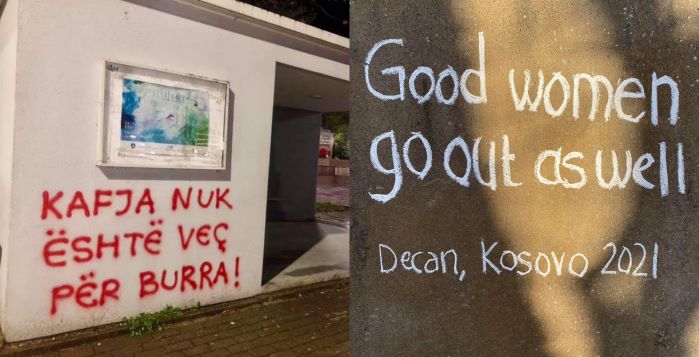 KAFJA NUK
ËSHTË VEÇ
PËR BURRA!
Good women
go out as well
Decan, Kosovo 2021